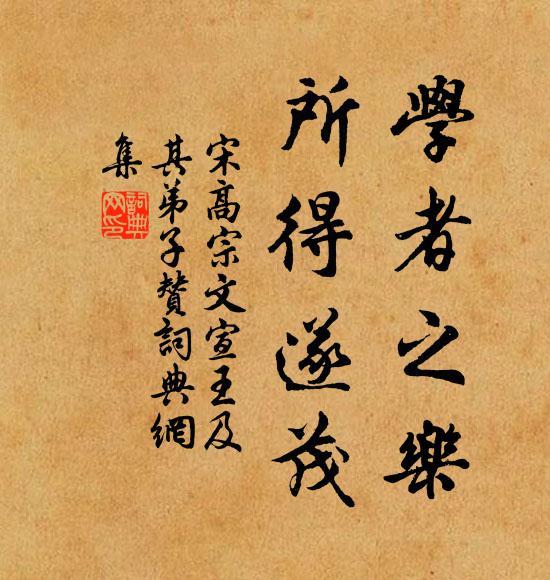 學者之樂
所得遂茂
宋高宗文宣王及
其弟子贊詞典網
集
詞典網印